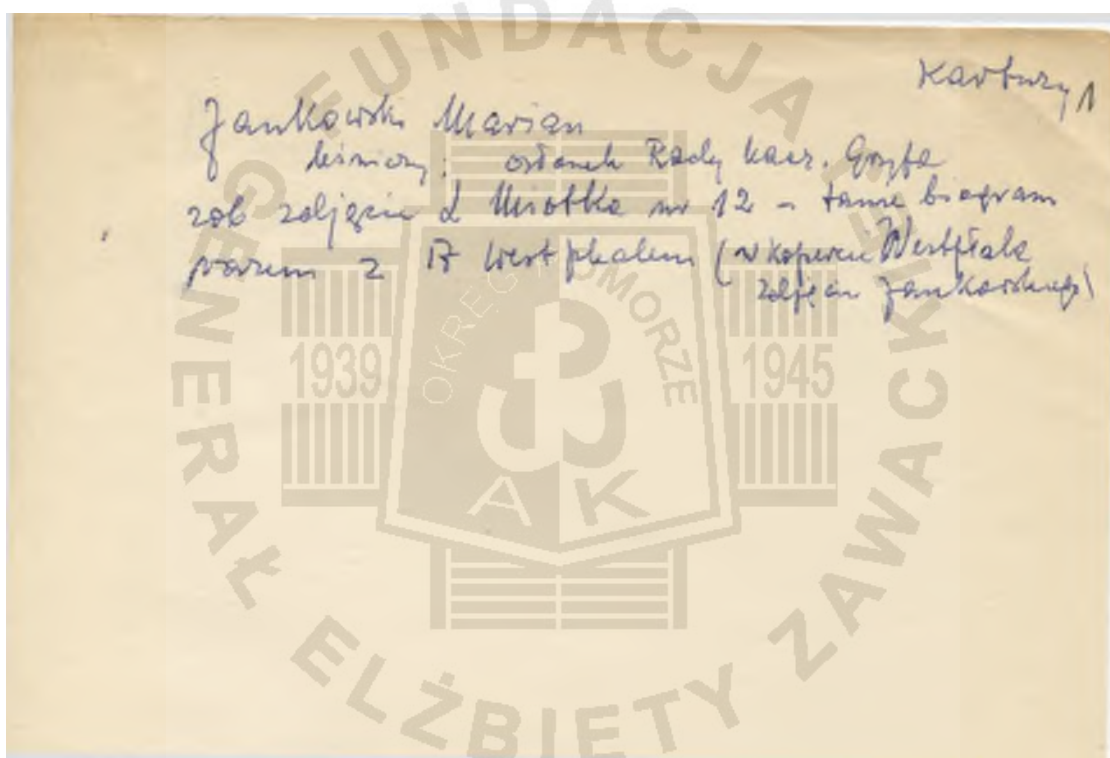 Kartuzy 1
Jankowski Marian
leśniczy; członek Rady Nacz. Gryfa
zob zdjęcie L Miotka nr 12 - tamże biogram
razem z B Westphalem (w kopercie Westphala
zdjęcie Jankowskiego)
FUNDACJA
GENERAŁ ELŻBIETY ZAWACKIEJ
OKRĘG POMORZE
1939
1945
AK